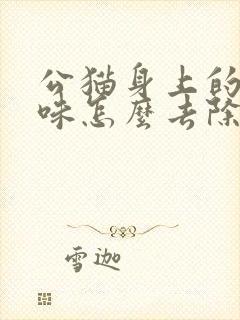 公猫身上的
味怎麼去除
雪迦